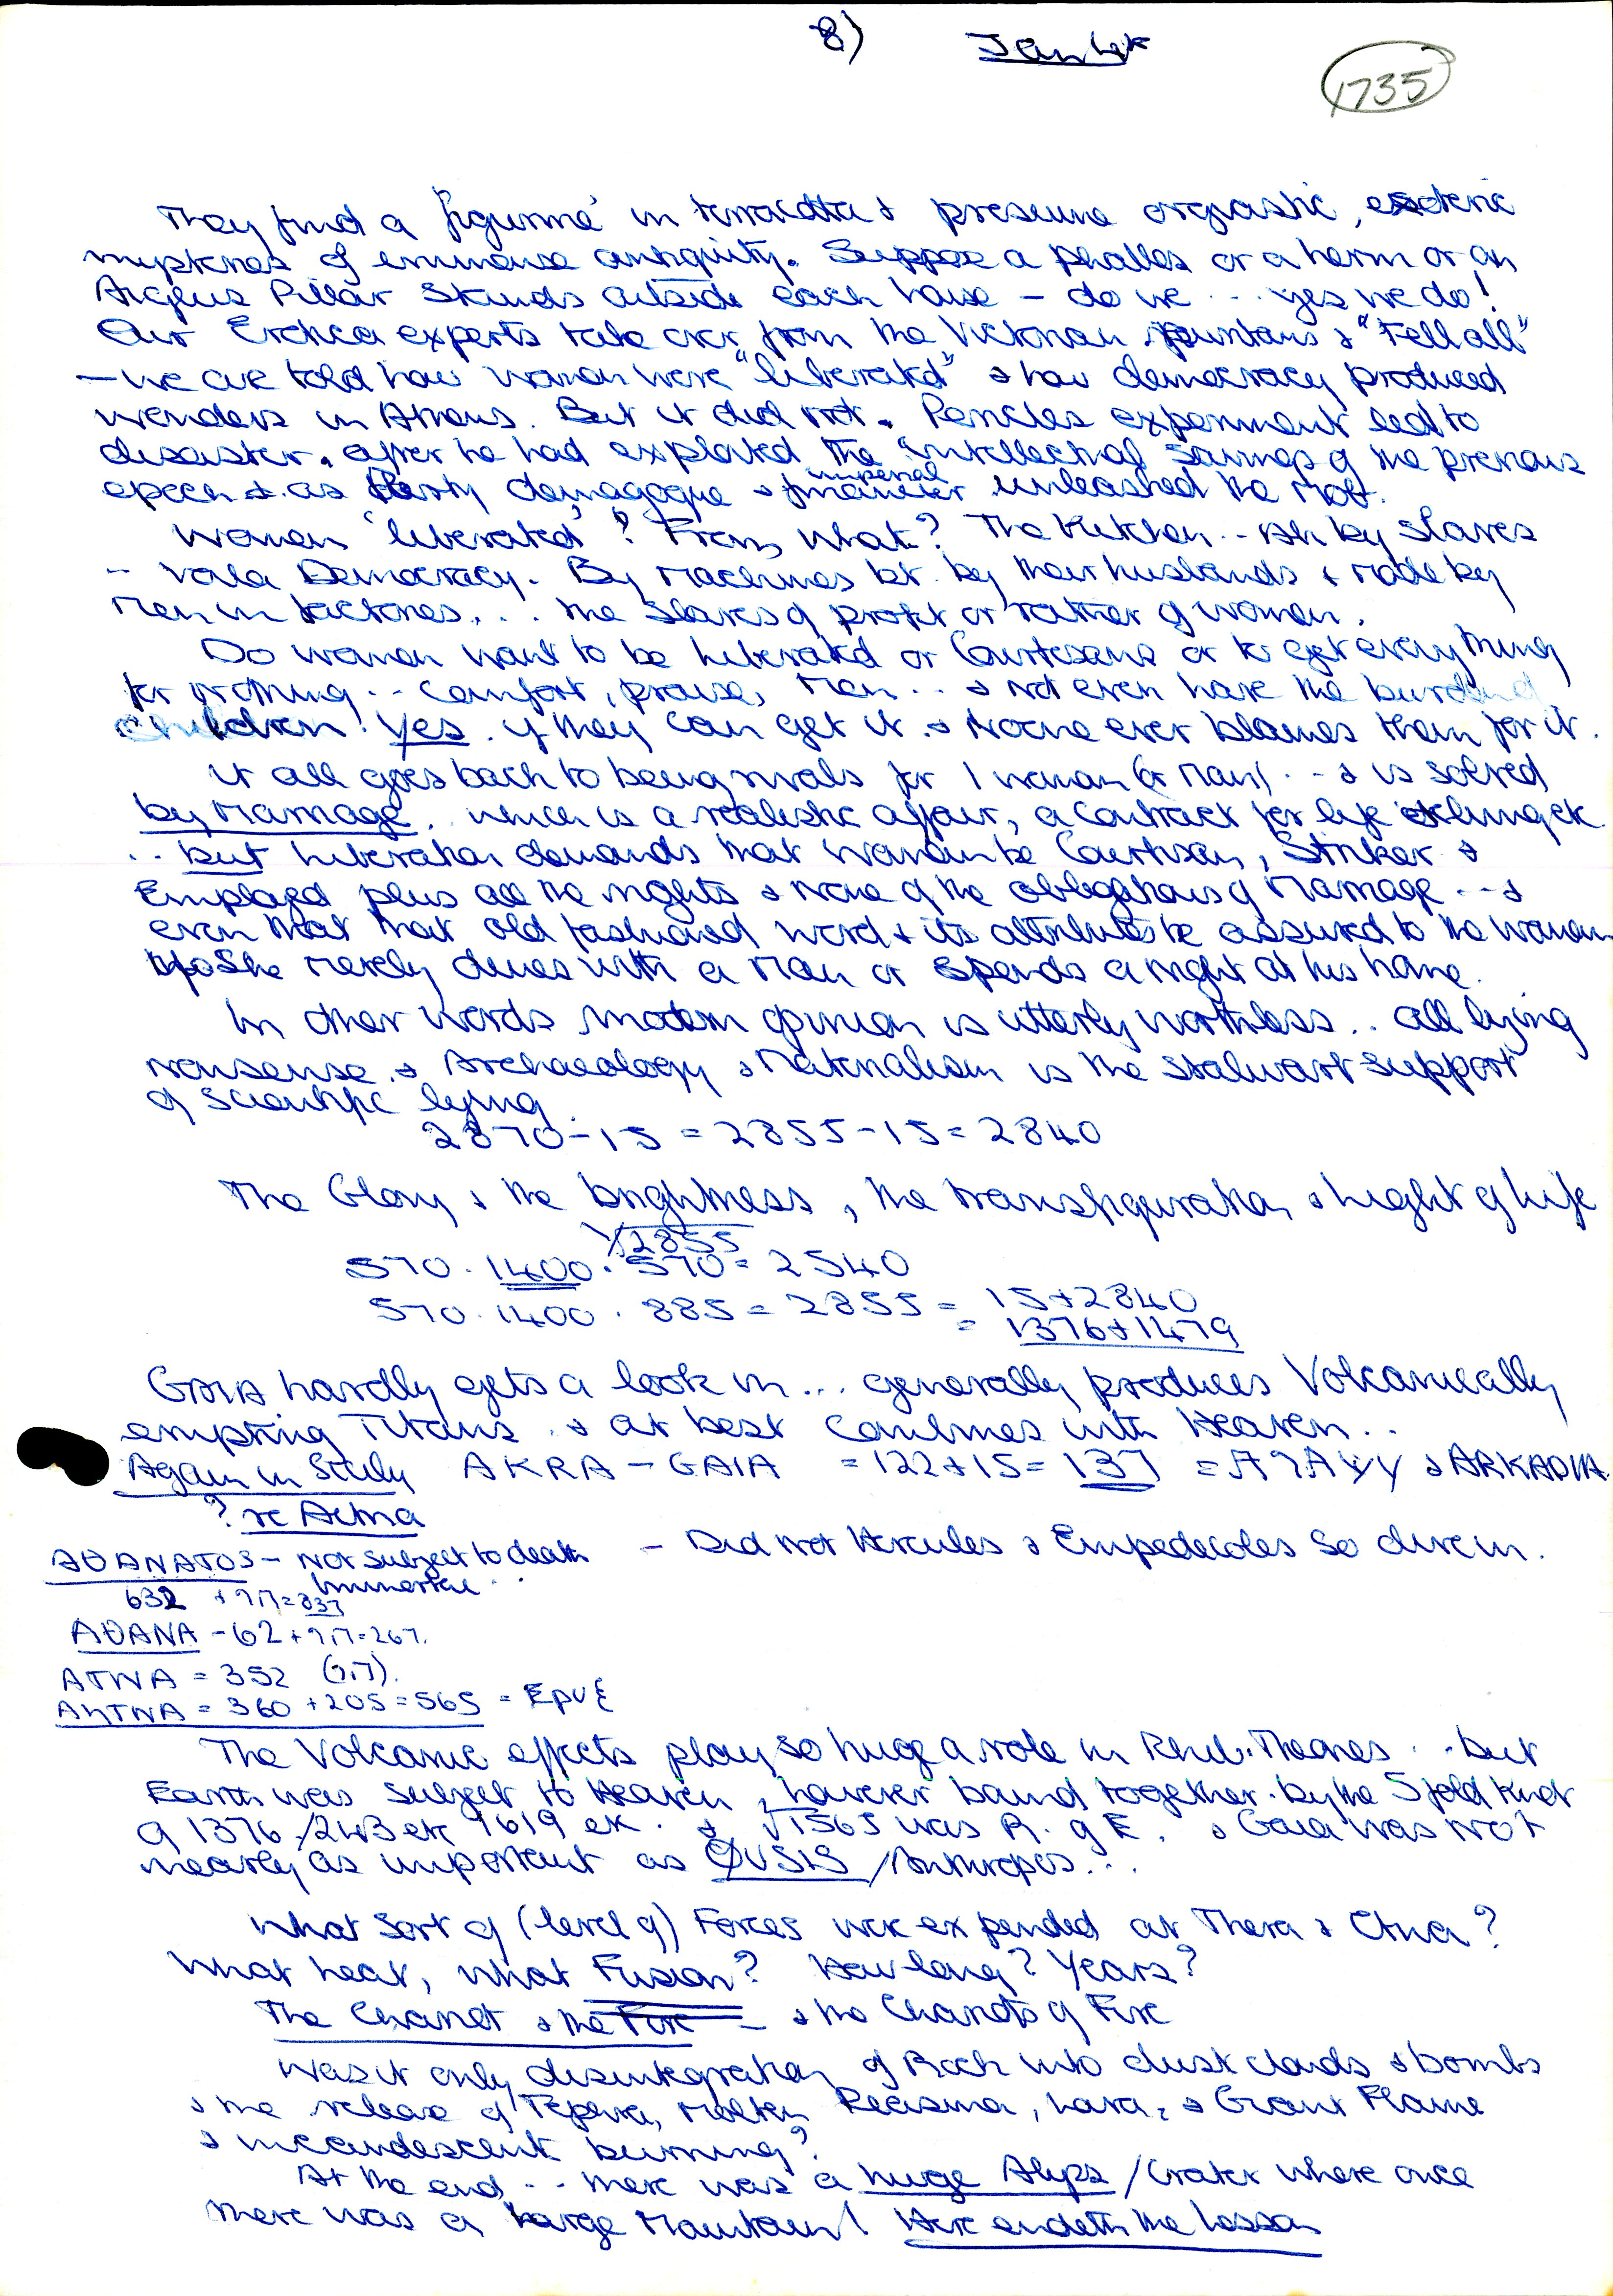 8)
1735
They find a 'figurine' in terracotta & presume orgiastic, esoteric
mysteries of immense antiquity. Suppose a phallos or a herm or an
Pillar stands outside each house - do we ... yes we do!
Our Erotica experts take over from the Victorian & "Tell all"
- we are told how women were "liberated" & how democracy produced
wonders in Athens. But it did not. Pericles experiment led to
disaster. after he had exploited the intellectual of the previous
epoch & as Party demagogue & imperial unleashed the Mob.
Women 'liberated'? From what? The Kitchen .. Ah by slaves
- Voila Democracy. By Machines by their husbands & Made by
Men in factories... the slaves of profit or rather of women.
Do women want to be liberated or Courtesans or to get everything
for nothing .. comfort, praise, Men .. & not even have the burden of
children! Yes. if they can get it & Noone ever blames them for it.
it all goes back to being rivals for 1 woman (or Man) .. & is solved
by Marriage. which is a realistic affair, a contract for life
.. but Liberation demands that Woman be Courtisan, Striker &
Employed plus all the rights & None of the obligations of Marriage .. &
even that that old fashioned word & its attributes be assured to the woman
She Merely dines with a Man or spends a night at his home.
In other words modern opinion is utterly worthless .. all lying
nonsense. & Archaeology & Materialism is the stalwart support
of scientific lying.
2870 - 15 = 2855 - 15 = 2840
The Glory & the brightness, the transfiguration & Light of Life
√2855
570 . 1400 . 570 = 2540
570 . 1400 . 885 = 2855 = 15 + 2840
= 1376 + 1479
GAIA hardly gets a look in ... generally produces Volcanically
erupting Titans & at best combines with Heaven ..
Again in Sicily AKRA - GAIA = 122 + 15 = 137 = & ARKADIA.
? re Aetna
AθANATOS - Not subject to death - Did not Hercules & Empedocles so dive in.
Immortal ..
632
AθANA - 62 = 267.
ATNA = 352
= 360 + 205 = 565
The Volcanic effects play so huge a role in Themes .. but
Earth was subject to Heaven, however bound together by the 5 fold Knot
of 1376/243 etc 1619 etc. & √1565 was R. of E. & Gaia was NOT
nearly as important as ØUSIS / Anthropos ...
What sort of (level of) Forces were expended at Thera & Etna?
What heat, what Fusion? How long? Years?
The Chariot & the Fire - & the Chariots of Fire
Was it only disintegration of Rock into dust clouds & bombs
& the release of Molten Lava, & Giant Flame
& incandescent burning?
At the end .. there was a huge / Crater where once
there was a large Mountain! Here endeth the lesson